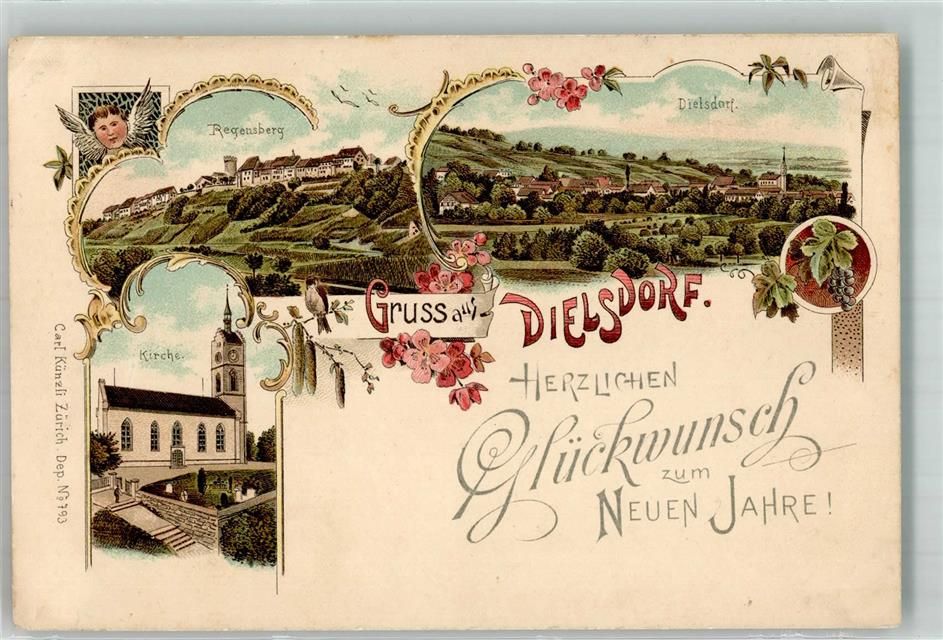 Regensberg
Dielsdorf.
Kirche.
Gruss aus
DIELSDORF.
HERZLICHEN
Glückwunsch
zum
NEUEN JAHRE!
Carl Künzli Zürich. Dep. No 793